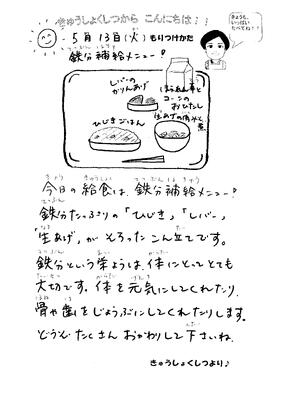 きゅうしょくしつから こんにちは♪
きょうも、
いっぱい
たべてね！！
5月13日(火) もりつけかた
鉄分補給メニュー！
レバーの
かりんあげ
ほうれん草と
コーンの
おひたし
ひじきごはん
生あげのみそ煮
今日の給食は、鉄分補給メニュー！
鉄分たっぷりの「ひじき」「レバー」
「生あげ」がそろったこん立てです。
鉄分という栄ようは、体にとってとても
大切です。体を元気にしてくれたり、
骨や歯をじょうぶにしてくれたりします。
どうぞたくさんおかわりして下さいね。
きゅうしょくしつより♪